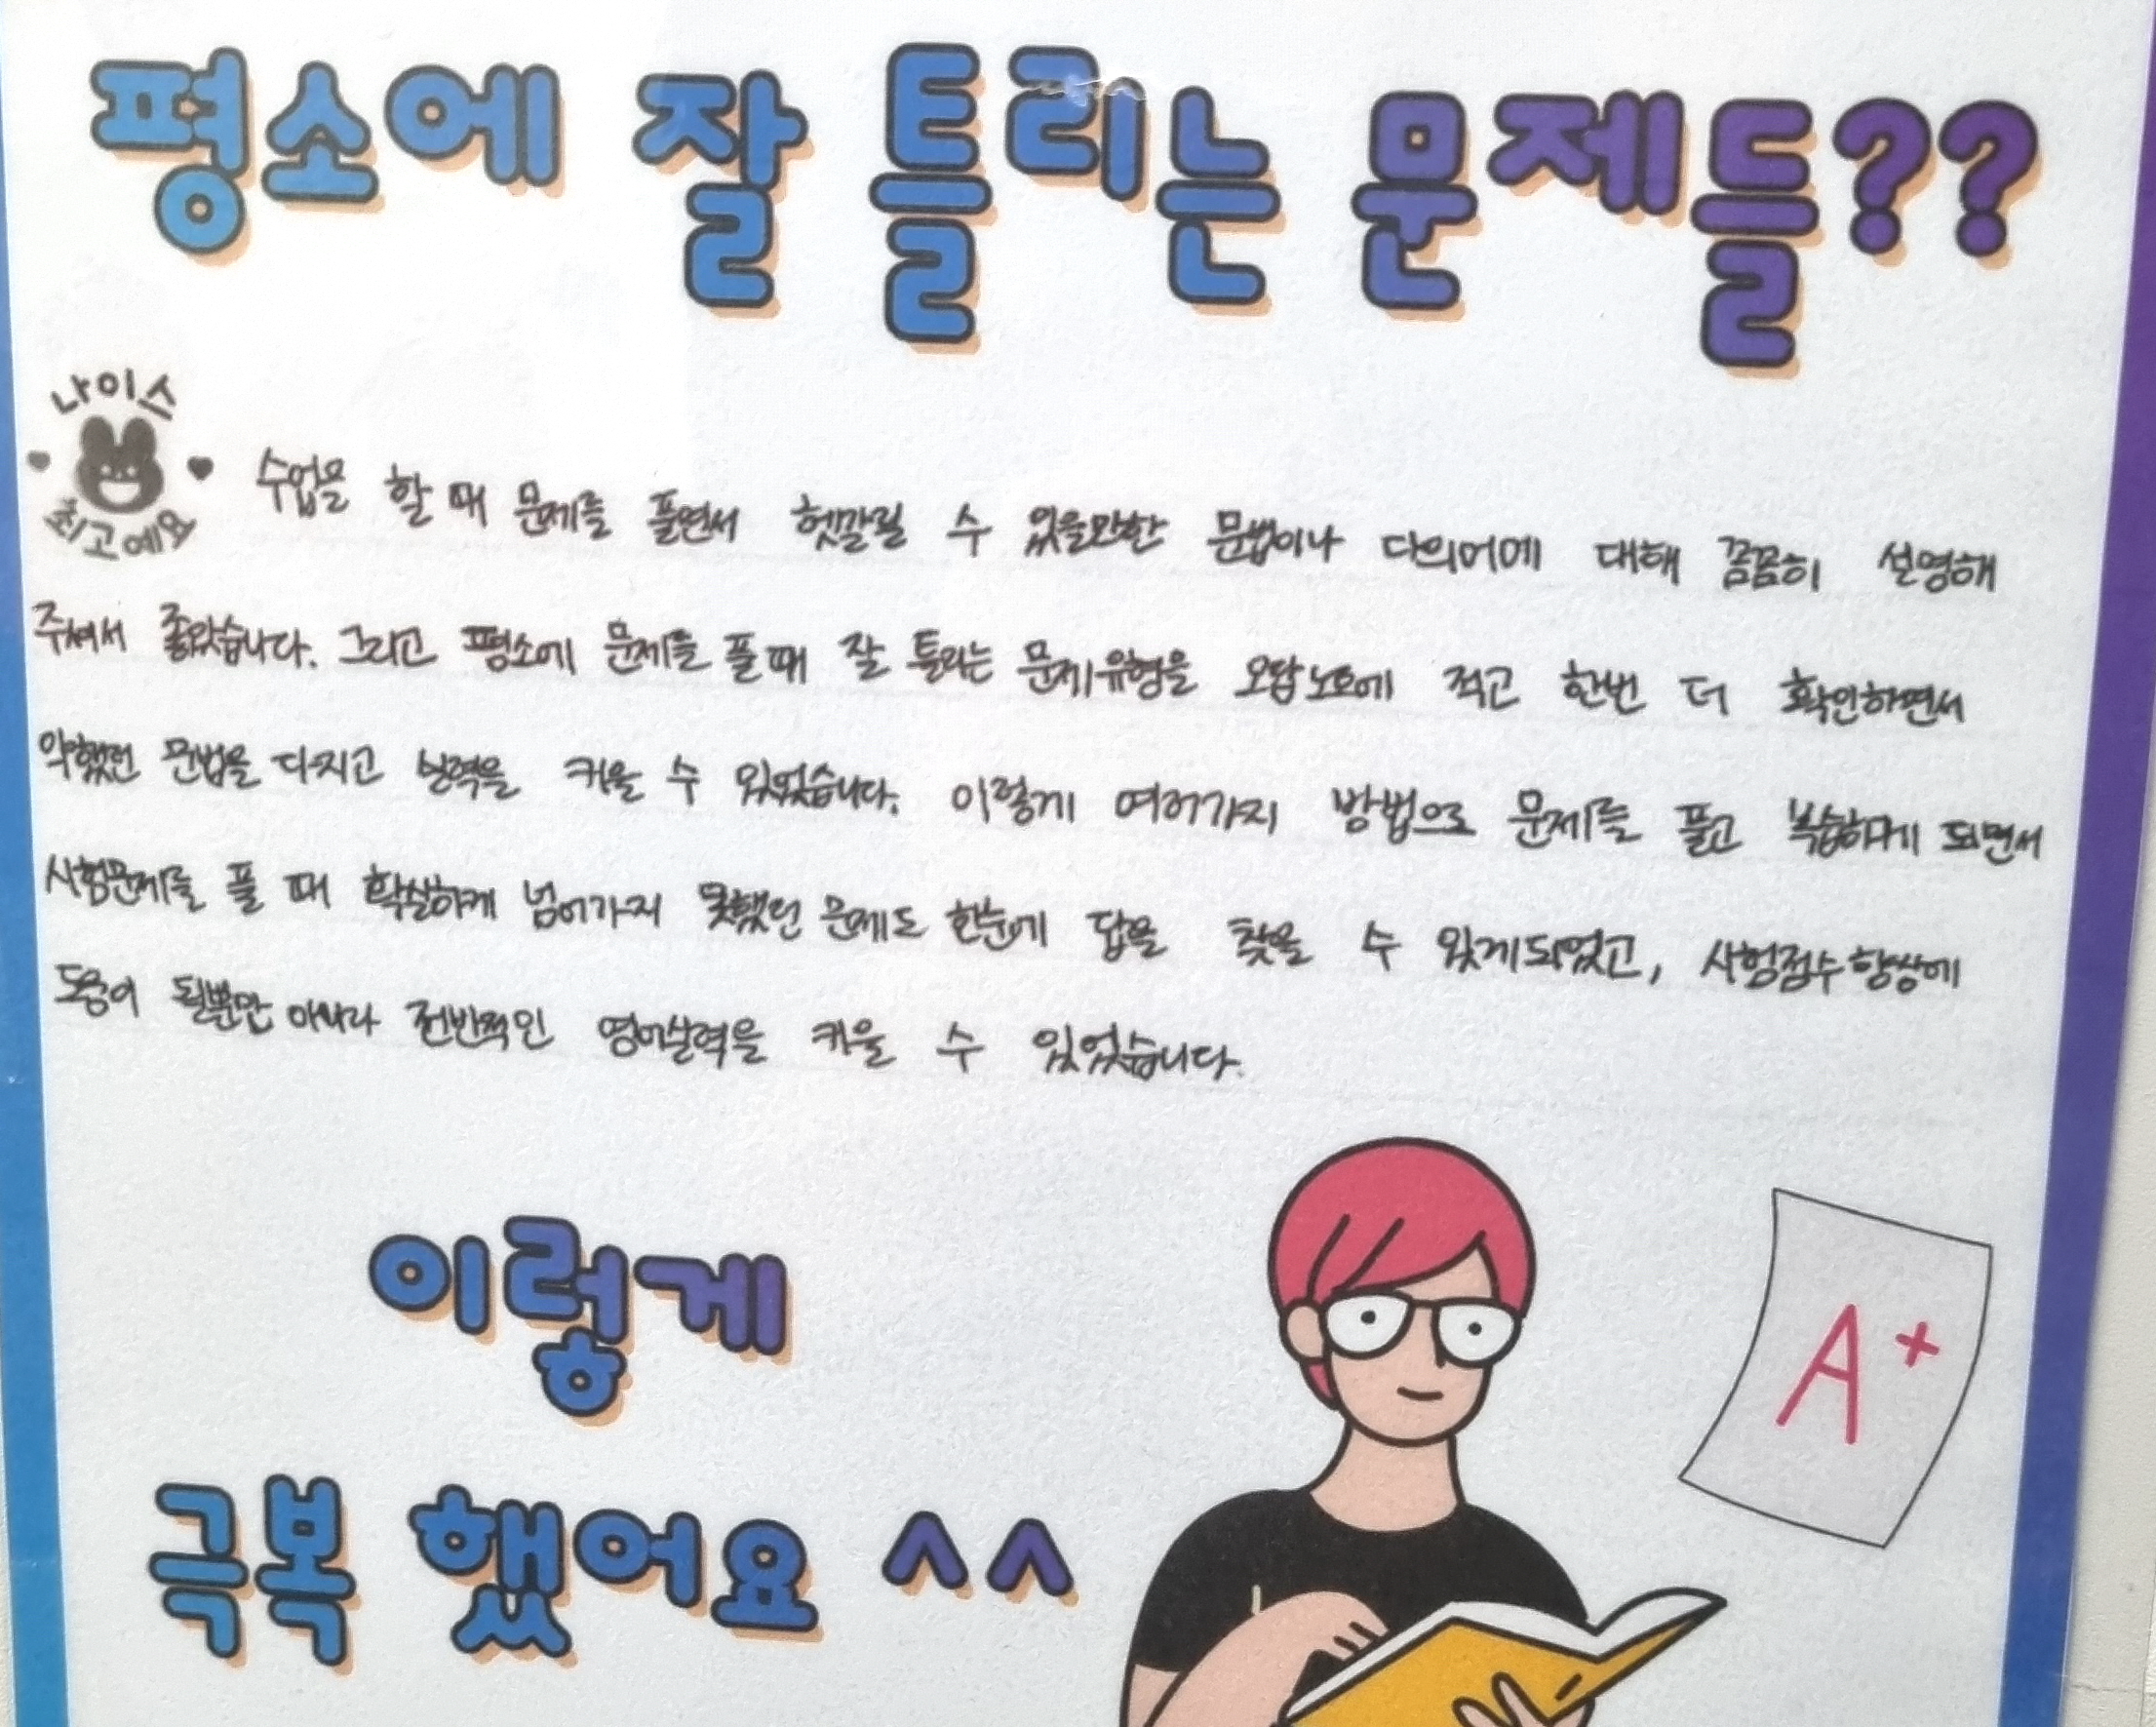 평소에 잘 틀리는 문제들??
나이스
최고예요
수업을 할 때 문제를 풀면서 헷갈릴 수 있을만한 문법이나 다의어에 대해 꼼꼼히 설명해
주셔서 좋았습니다. 그리고 평소에 문제를 풀 때 잘 틀리는 문제유형을 오답노트에 적고 한번 더 확인하면서
약했던 문법을 다지고 실력을 키울 수 있었습니다. 이렇게 여러가지 방법으로 문제를 풀고 복습하게 되면서
시험문제를 풀 때 확실하게 넘어가지 못했던 문제도 한눈에 답을 찾을 수 있게되었고, 시험점수 향상에
도움이 될뿐만 아니라 전반적인 영어실력을 키울 수 있었습니다.
이렇게
극복 했어요 ^^
A+